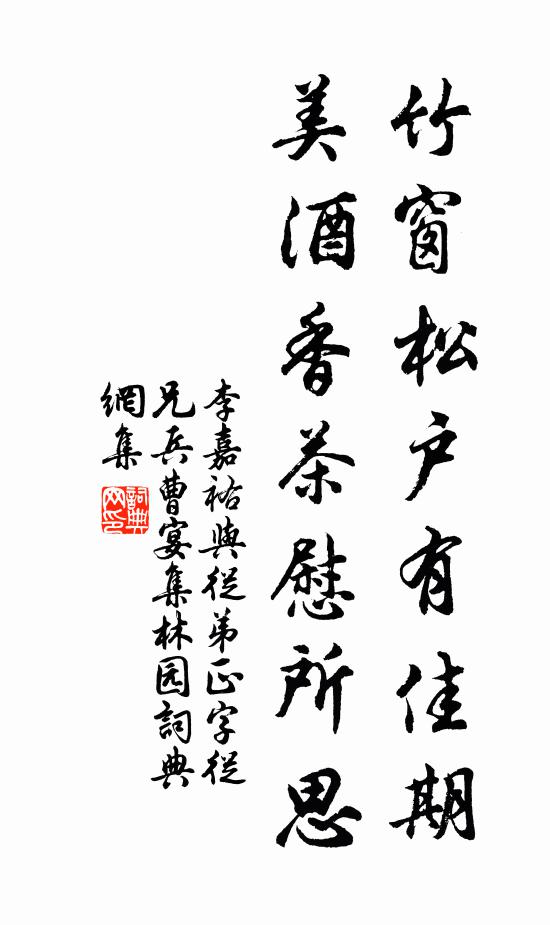 竹窗松户有佳期
美酒香茶慰所思
李嘉祐與從弟正字從
兄兵曹宴集林园詞典
網集
詞典
网印